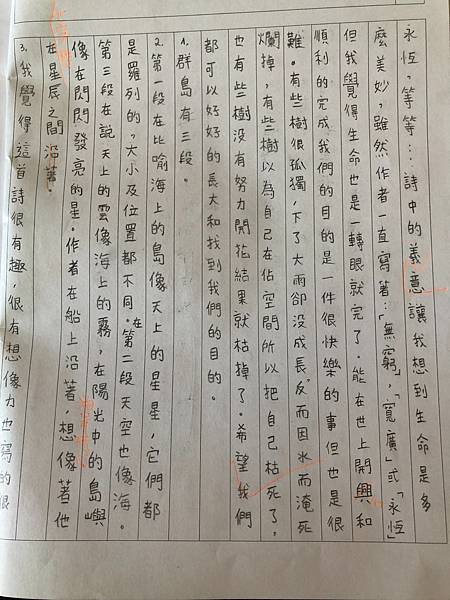 永恆,等等…詩中的義意讓我想到生命是多
麼美妙,雖然作者一直寫著…「無窮」,「寬廣」或「永恆」
但我覺得生命也是一轉眼就完了。能在世上開興和
順利的完成我們的目的是一件很快樂的事但也是很
難。有些樹很孤獨,下了大雨卻没成長,反而因水而淹死
爛掉,有些樹以為自己在佔空間所以把自己枯死了。
也有些樹没有努力開花結果就枯掉了。希望我們
都可以好好的長大和找到我們的目的。
1. 群島有三段。
2. 第一段在比喻海上的島像天上的星星,它們都
是羅列的,大小及位置都不同。第二段在天空也像海。
第三段在説天上的雲像海上的霧,在陽光中的島嶼
像在閃閃發亮的星。作者在船上沿著,想像著他
在星辰之間沿著。
3. 我覺得這首詩很有趣,很有想像力也寫的很